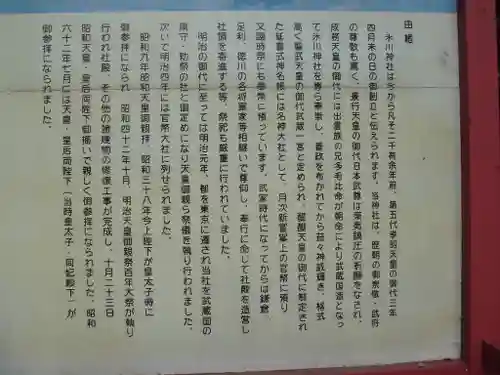 由緒
氷川神社は今から凡そ二千有余年前、第五代孝昭天皇の御代三年
四月未の日の御創立と伝えられます。当神社は、歴朝の御崇敬・武将
の尊敬も篤く、景行天皇の御代日本武尊は東夷鎮圧の祈願をなされ、
成務天皇の御代には出雲族の兄多毛比命が朝命により武蔵国造となっ
て氷川神社を専ら奉崇し、善政を布かれてから益々神威輝き、格式
高く聖武天皇の御代武蔵一宮と定められ、醍醐天皇の御代に制定され
た延喜式神名帳には名神大社として、月次新嘗案上の官幣に預り
又臨時祭にも奉幣に預っています。武家時代になってからは鎌倉、
足利、徳川の各将軍家等相継いで尊仰し、奉行に命じて社殿を造営し
社領を寄進する等、祭祀も厳重に行われていました。
明治の御代に至っては明治元年、都を東京に遷され当社を武蔵国の
鎮守・勅祭の社と御定めになり天皇御親ら祭儀を執り行われました。
次いで明治四年には官幣大社に列せられました。
昭和九年昭和天皇御親拝、昭和三十八年今上陛下が皇太子時に
御参拝になられ、昭和四十二年十月、明治天皇御親祭百年大祭が執り
行われ社殿、その他の諸建物の修復工事が完成し、十月二十三日
昭和天皇・皇后両陛下御揃いで親しく御参拝になられました。昭和
六十二年七月には天皇・皇后両陛下(当時皇太子・同妃殿下)が
御参拝になられました。